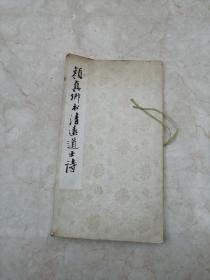 颜真卿书清远道士诗